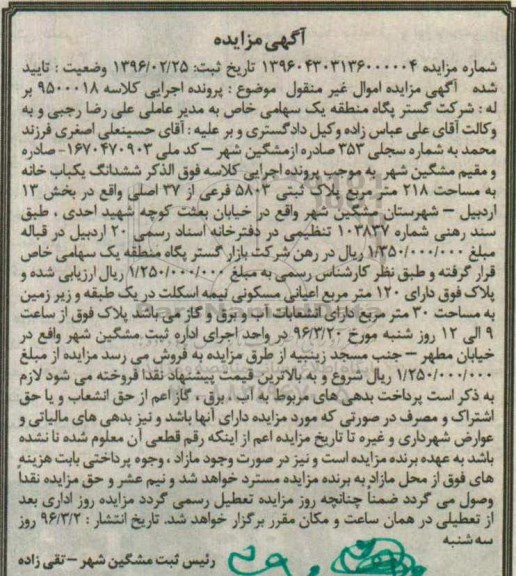 آگهی مزایده
شماره مزایده ۱۳۹۶۰۴۳۰۳۱۳۶۰۰۰۰۰۴ تاریخ ثبت: ۱۳۹۶/۰۲/۲۵ وضعیت : تایید
شده آگهی مزایده اموال غیر منقول موضوع : پرونده اجرایی کلاسه ۹۵۰۰۰۱۸ بر
له : شرکت گستر پگاه منطقه یک سهامی خاص به مدیر عاملی علی رضا رجبی و به
وکالت آقای علی عباس زاده وکیل دادگستری و بر علیه : آقای حسینعلی اصغری فرزند
محمد به شماره سجلی ۳۵۳ صادره ازمشگین شهر – کد ملی ۱۶۷۰۴۷۰۹۰۳- صادره
و مقیم مشگین شهر به موجب پرونده اجرایی کلاسه فوق الذکر ششدانگ یکباب خانه
به مساحت ۲۱۸ متر مربع پلاک ثبتی ۵۸۰۳ فرعی از ۳۷ اصلی واقع در بخش ۱۳
اردبیل – شهرستان مشگین شهر واقع در خیابان بعثت کوچه شهید احدی ، طبق
سند رهنی شماره ۱۰۳۸۳۷ تنظیمی در دفترخانه اسناد رسمی ۲۰ اردبیل در قباله
مبلغ ۱/۳۵۰/۰۰۰/۰۰۰ ریال در رهن شرکت بازار گستر پگاه منطقه یک سهامی خاص
قرار گرفته و طبق نظر کارشناس رسمی به مبلغ ۱/۲۵۰/۰۰۰/۰۰۰ ریال ارزیابی شده و
پلاک فوق دارای ۱۲۰ متر مربع اعیانی مسکونی نیمه اسکلت در یک طبقه و زیر زمین
به مساحت ۳۰ متر مربع دارای انشعابات آب و برق و گاز می باشد پلاک فوق از ساعت
۹ الی ۱۲ روز شنبه مورخ ۹۶/۳/۲۰ در واحد اجرای اداره ثبت مشگین شهر واقع در
خیابان مطهر – جنب مسجد زینبیه از طرق مزایده به فروش می رسد مزایده از مبلغ
۱/۲۵۰/۰۰۰/۰۰۰ ریال شروع و به بالاترین قیمت پیشنهاد نقدا فروخته می شود لازم
به ذکر است پرداخت بدهی های مربوط به آب ، برق ، گاز اعم از حق انشعاب و یا حق
اشتراک و مصرف در صورتی که مورد مزایده دارای آنها باشد و نیز بدهی های مالیاتی و
عوارض شهرداری و غیره تا تاریخ مزایده اعم از اینکه رقم قطعی آن معلوم شده تا نشده
باشد به عهده برنده مزایده است و نیز در صورت وجود مازاد ، وجوه پرداختی بابت هزینه
های فوق از محل مازاد به برنده مزایده مسترد خواهد شد و نیم عشر و حق مزایده نقدا
وصول می گردد ضمنا چنانچه روز مزایده تعطیل رسمی گردد مزایده روز اداری بعد
از تعطیلی در همان ساعت و مکان مقرر برگزار خواهد شد. تاریخ انتشار : ۹۶/۳/۲ روز
سه شنبه
رئیس ثبت مشگین شهر – تقی زاده